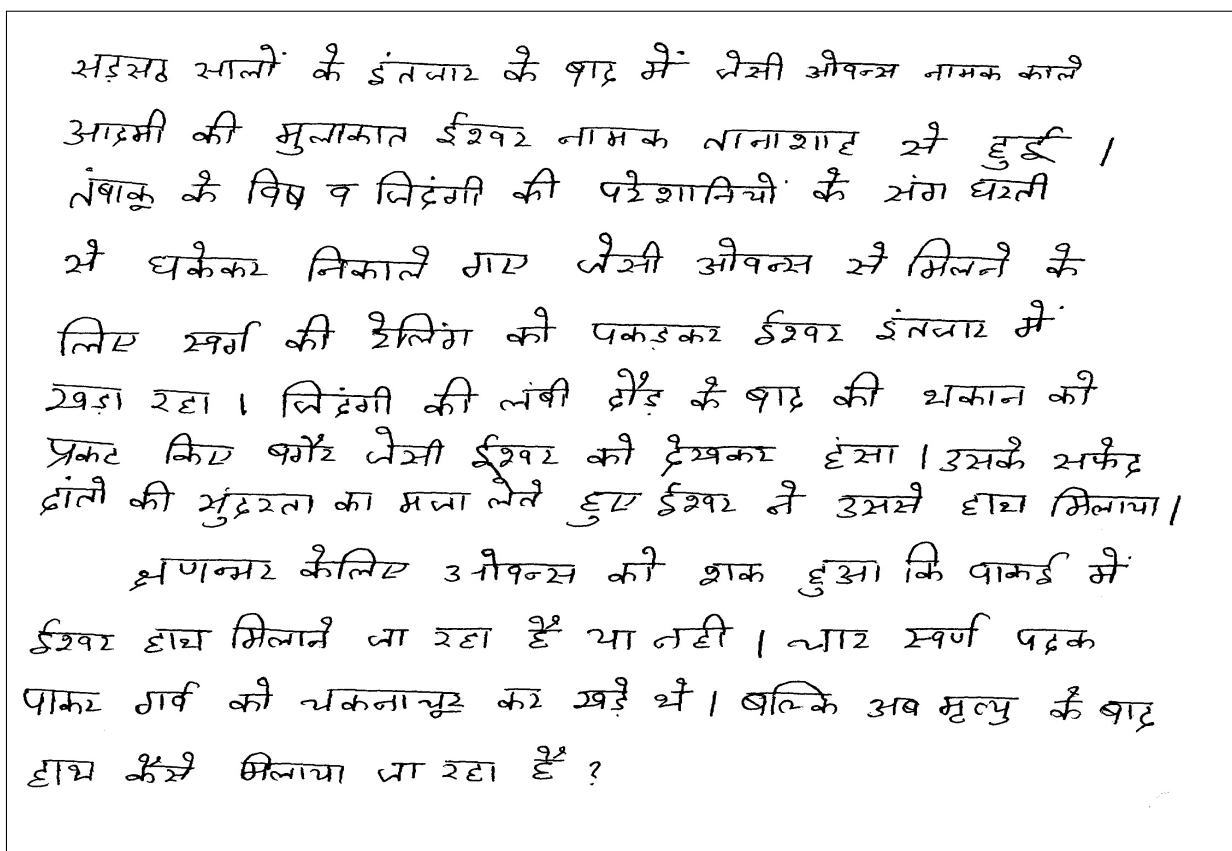 सड़सठ सालों के इंतजार के बाद में जेसी ओवन्स नामक काले
आदमी की मुलाकात ईश्वर नामक तानाशाह से हुई ।
तंबाकू के विष व जिदंगी की परेशानियों के संग धरती
से धकेकर निकाले गए जेसी ओवन्स से मिलने के
लिए स्वर्ग की रेलिंग को पकड़कर ईश्वर इंतजार में
खड़ा रहा । जिदंगी की लंबी दौड़ के बाद की थकान को
प्रकट किए बगैर जेसी ईश्वर को देखकर हंसा । उसके सफेद
दांतो की सुंदरता का मजा लेते हुए ईश्वर ने उससे हाथ मिलाया ।
क्षणभर केलिए ओवन्स को शक हुआ कि वाकई में
ईश्वर हाथ मिलाने जा रहा है या नही । चार स्वर्ण पदक
पाकर गर्व को चकनाचूर कर खड़े थे । बल्कि अब मृत्यु के बाद
हाथ कैसे मिलाया जा रहा है ?